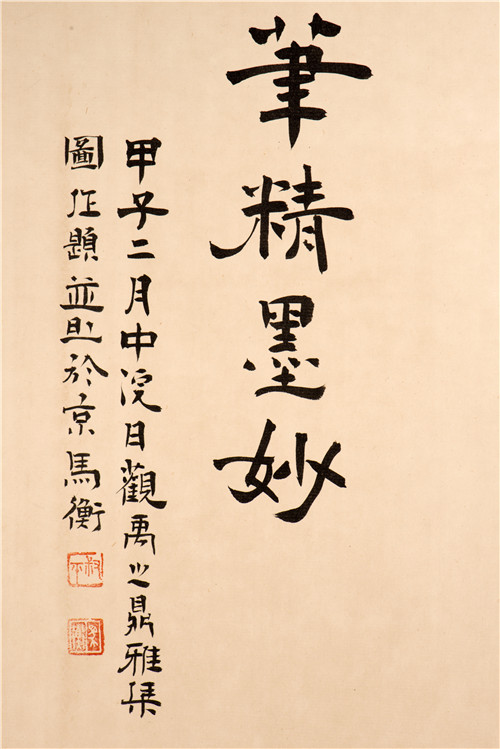 筆精墨妙
甲子二月中浣日觀禹之鼎雅集
圖作題並於京馬衡
叔平